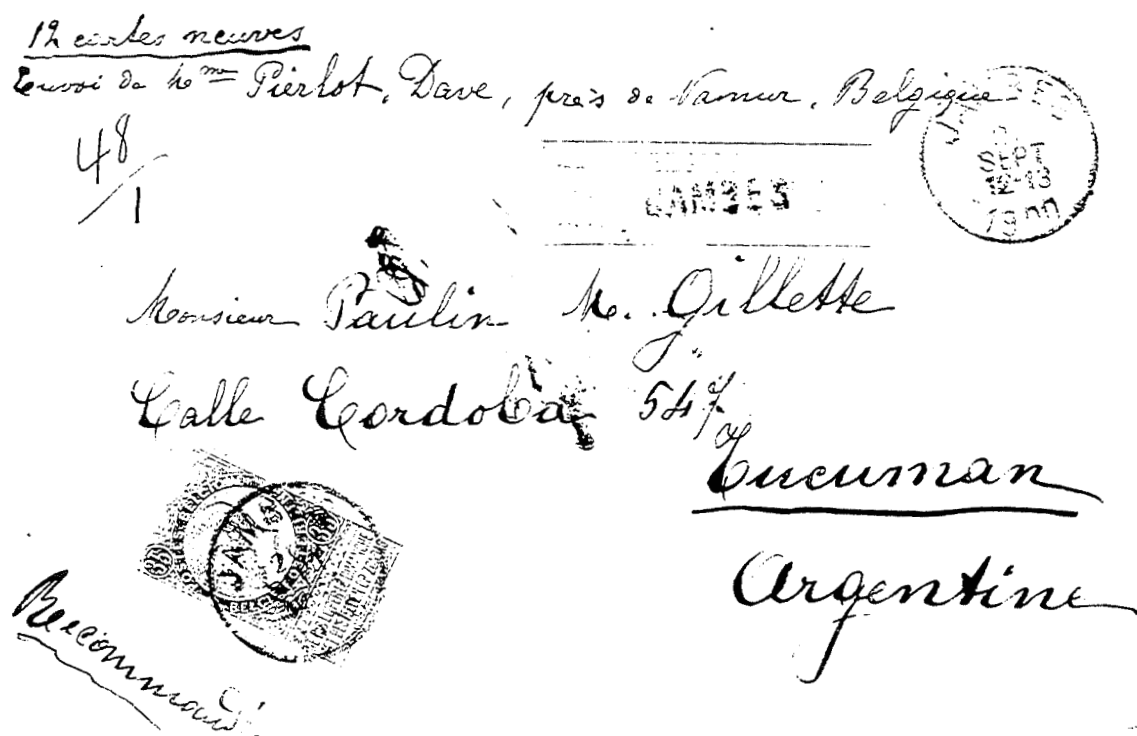 12 cartes neuves
Envoi de Mme Pierlot, Dave, près de Namur, Belgique
48/1
JAMBES
SEPT
12-13
1900
JAMBES
Monsieur Paulin M. Gillette
Calle Cordoba 547
Tucuman
Argentine
35
JAMB
35
Recommandé